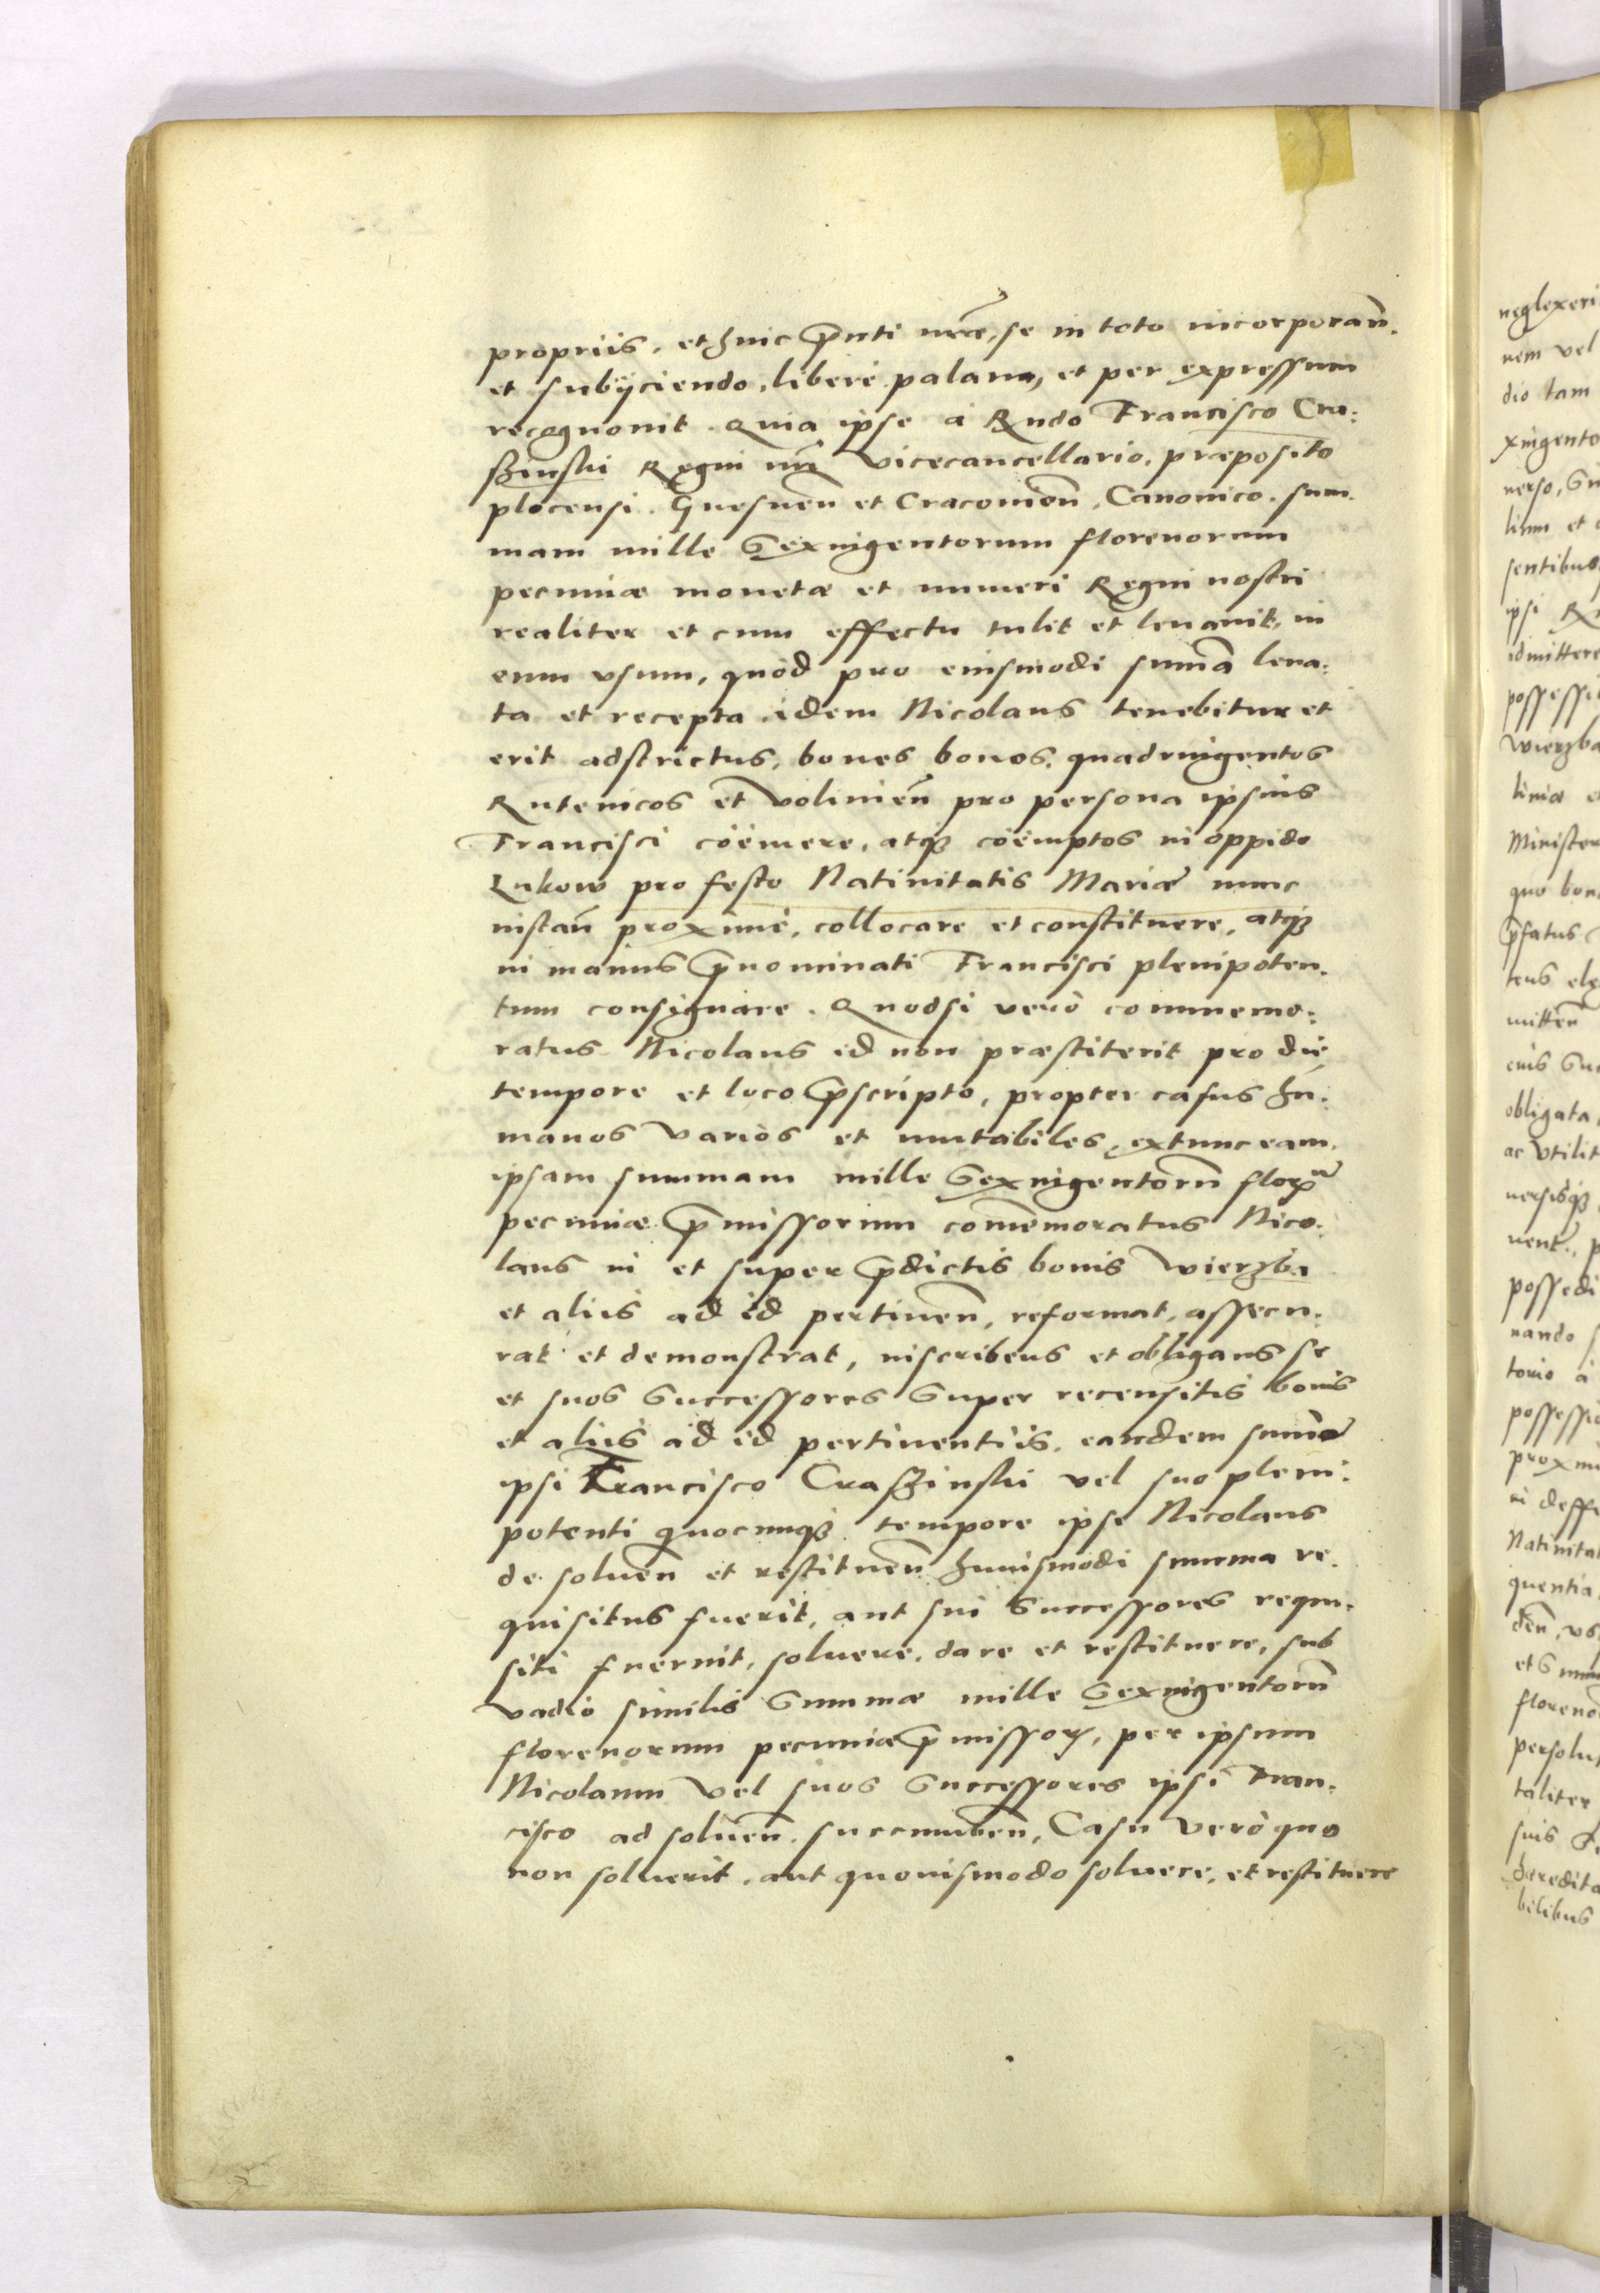 propriis, et huic p̄nti nrae, se in toto incorporan̄.
et subÿciendo, libere palam, et per expressum
recognouit. Quia ipse à Rndo Francisco Cra:
szinski Regni nri Vicecancellario, præposito
plocensi. Gnesnen̄ et Cracouien̄, Canonico. sum.
mam mille Sexingentorum florenorum
pecuniæ monetæ et numeri Regni nostri
realiter et cum effectu tulit et leuauit, in
eum vsum, quòd pro eiusmodi sum̄a leua:
ta et recepta idem Nicolaus tenebitur et
erit adstrictus, boues bonos, quadringentos
Rutenicos et Volinien̄ pro persona ipsius
Francisci cöemere, atq₃ cöemptos in oppido
Lukow pro festo Natiuitatis Mariæ nunc
instan̄ proximè, collocare et constituere, atq₃
in manus p̄nominati Francisci plenipoten.
tum consignare. Quodsi verò commemo:
ratus Nicolaus id non præstiterit pro die
tempore et loco p̄scripto, propter casus hu:
manos varios et mutabiles, extunc eam.
ipsam summam mille Sexingentorum̄ flor
pecuniæ p̄missorum com̄emoratus Nico.
laus in et super p̄dictis bonis Wierzba
et aliis ad id pertinen̄, reformat, assecu.
rat et demonstrat, inscribens et obligans se
et suos Successores Super recensitis bonis
et aliis ad id pertinentiis. eandem sum̄ā
ipsi Francisco Craszinski vel suo pleni.
potenti quocunq₃ tempore ipse Nicolaus
de soluen̄ et restituen̄ huiusmodi summa re.
quisitus fuerit, aut sui Successores requi.
siti fuerint, soluere, dare et restituere, sub
vadio similis Summæ mille Sexingentorum̄
florenorum pecuniæ p̄missoꝝ, per ipsum
Nicolaum vel suos Successores ipsi Fran.
cisco ad soluen̄. succumben̄, Casu verò quo
non soluerit, aut quouismodo soluere, et restituere
neglexeri
nem vel
dio tam
xingento
uerso, Su
linm et
sentibus
ipsi
idmittere
possessi
Wierzba
Minister
quo bon
p̄fatus
teus ele
mitten̄
eius Suc
obligata
ac vtilit
uersisq₃
possedi
nando
torio a
possessio
proxim
Natiuitat
quentia
florenor
persolu
taliter
suis
hæredita
bilibus